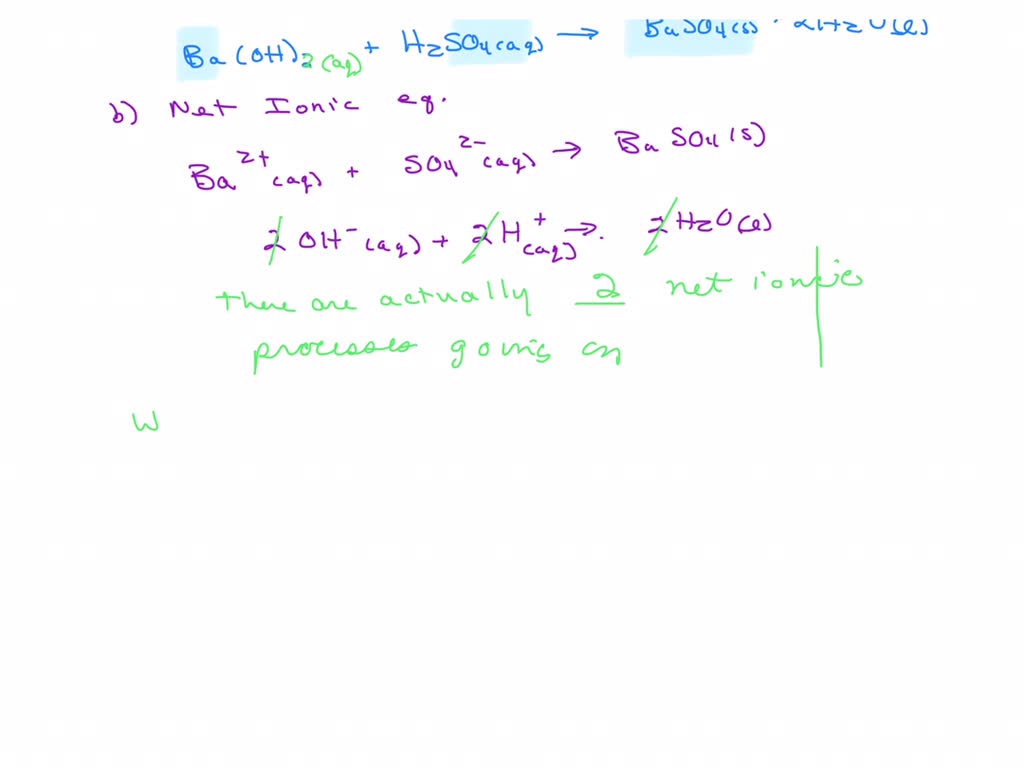 Ba(OH)2(aq) + H2SO4(aq) → BaSO4(s) + 2H2O(l)
b) Net Ionic eq.
Ba2+(aq) + SO42-(aq) → BaSO4(s)
2OH-(aq) + 2H+(aq) → 2H2O(l)
there are actually 2 net ionic
processes going on
W